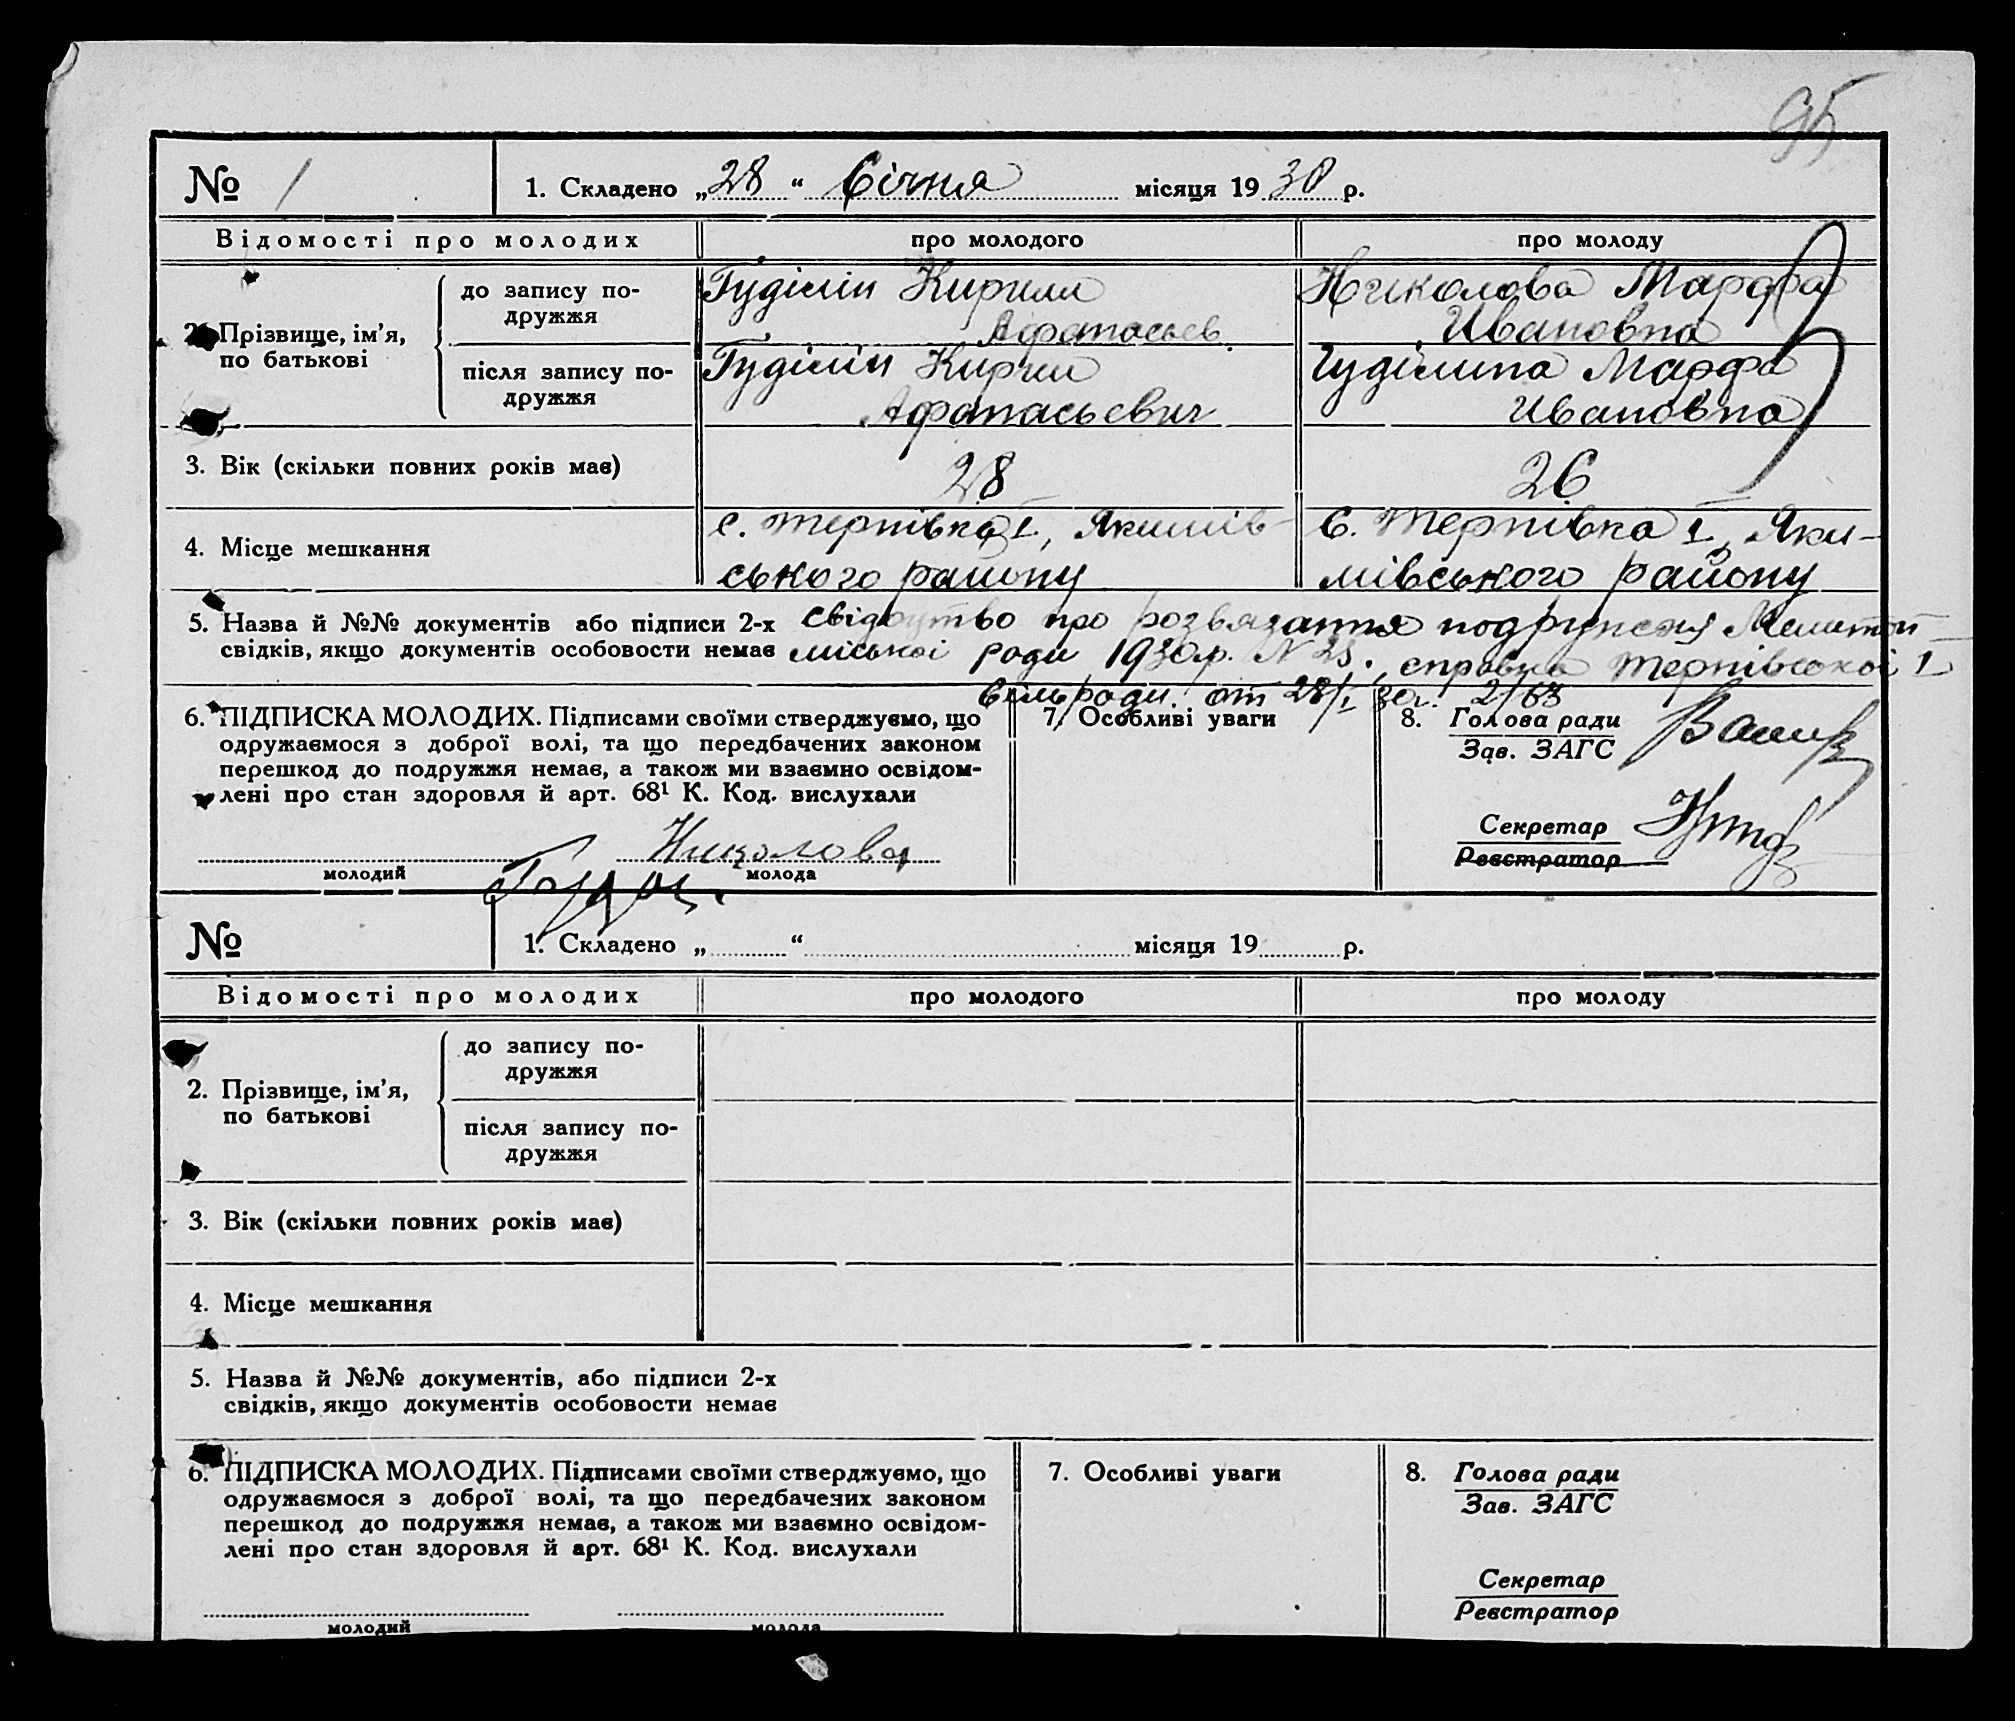 95
№ 1 1. Складено „28“ Січня місяця 1930 р.
Відомості про молодих про молодого про молоду
2. Прізвище, ім’я, по батькові
до запису по-
дружжя
Гуділін Кирило
Афанасьев.
Николова Марфа
Ивановна
після запису по-
дружжя
Гуділін Кирил
Афанасьевич
Гуділина Марфа
Ивановна
3. Вік (скільки повних років має) 28 26
4. Місце мешкання
с. Терпівка I, Якимів-
ського району
с. Терпівка I, Яки-
мівського району
5. Назва й №№ документів або підписи 2-х свідоцтво про розвязання подружжя Мелитоп
свідків, якщо документів особовости немає міської ради 1930р. N 25., справка Терпівської I
сільради. от 28/I 30г. 2/63
6. ПІДПИСКА МОЛОДИХ. Підписами своїми стверджуємо, що
одружаємося з доброї волі, та що передбачених законом
перешкод до подружжя немає, а також ми взаємно освідом-
лені про стан здоровля й арт. 68¹ К. Код. вислухали
Николова
молодий молода
7. Особливі уваги
8. Голова ради
Зав. ЗАГС
Секретар
Реєстратор
№ 1. Складено „ “ місяця 19 р.
Відомості про молодих про молодого про молоду
2. Прізвище, ім’я,
по батькові
до запису по-
дружжя
після запису по-
дружжя
3. Вік (скільки повних років має)
4. Місце мешкання
5. Назва й №№ документів, або підписи 2-х
свідків, якщо документів особовости немає
6. ПІДПИСКА МОЛОДИХ. Підписами своїми стверджуємо, що
одружаємося з доброї волі, та що передбачених законом
перешкод до подружжя немає, а також ми взаємно освідом-
лені про стан здоровля й арт. 68¹ К. Код. вислухали
молодий молода
7. Особливі уваги
8. Голова ради
Зав. ЗАГС
Секретар
Реєстратор